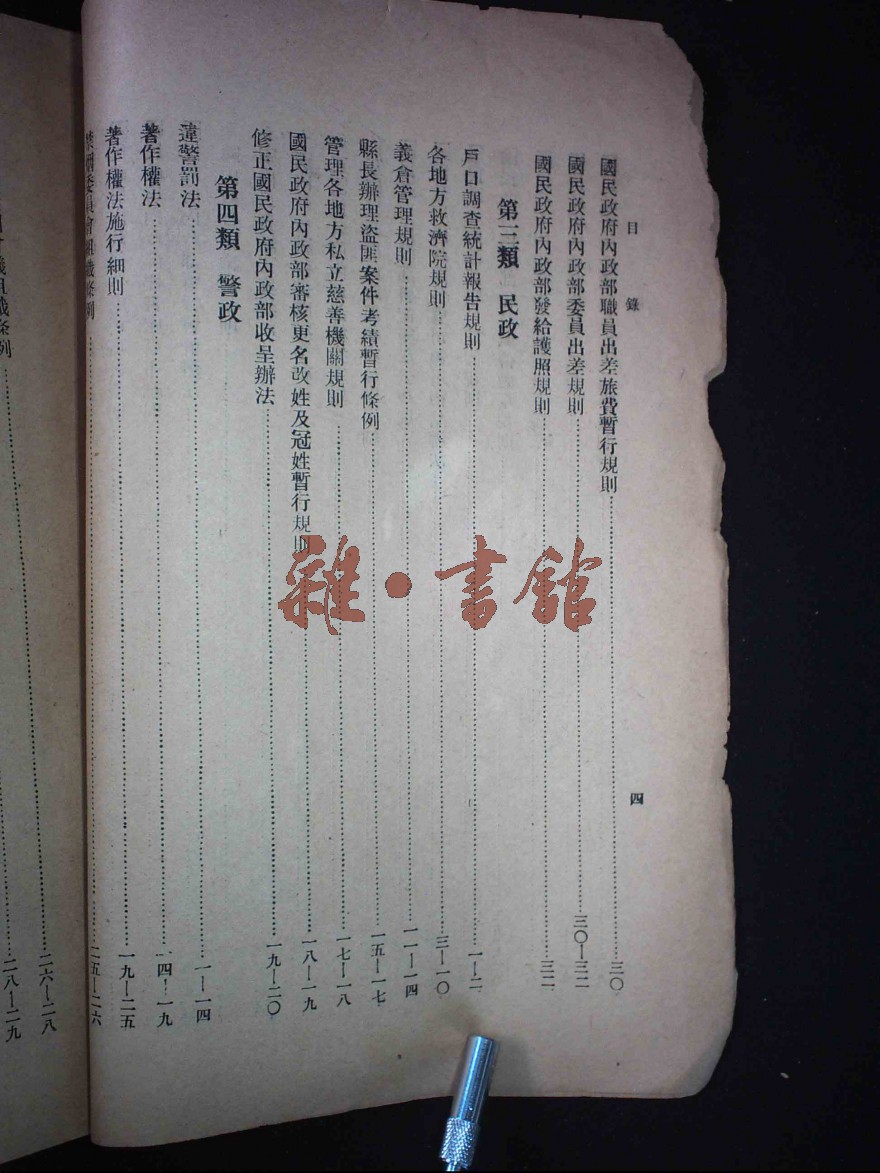 目錄 四
國民政府內政部職員出差旅費暫行規則 三〇
國民政府內政部委員出差規則 三〇—三二
國民政府內政部發給護照規則 三二
第三類 民政
戶口調查統計報告規則 一—二
各地方救濟院規則 三—一〇
義倉管理規則 一一—一四
縣長辦理盜匪案件考績暫行條例 一五—一七
管理各地方私立慈善機關規則 一七—一八
國民政府內政部審核更名改姓及冠姓暫行規則 一八—一九
修正國民政府內政部收呈辦法 一九—二〇
第四類 警政
違警罰法 一—一四
著作權法 一四—一九
著作權法施行細則 一九—二五
委員會組織條例 二五—二六
二六—二八
組織條例 二八—二九
雜·書館